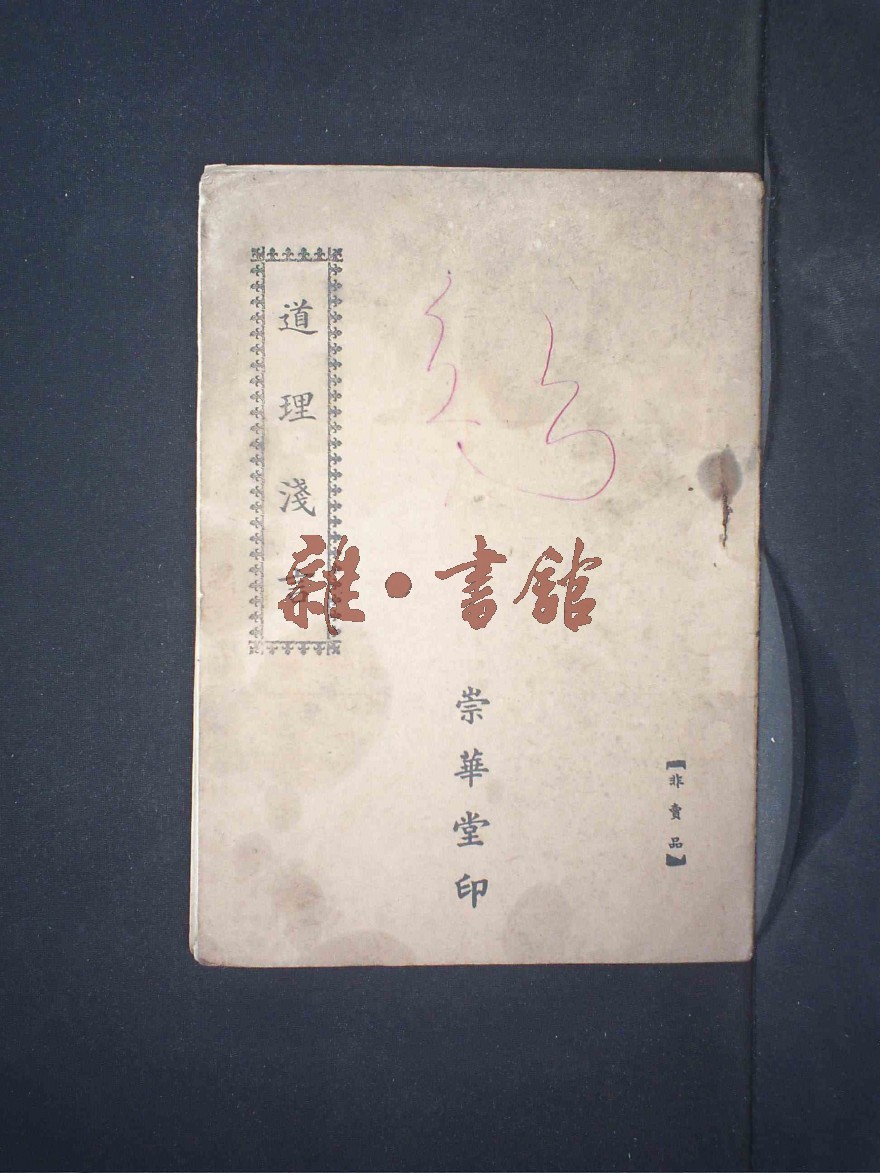 道理淺言
雜·書館
崇華堂印
【非賣品】